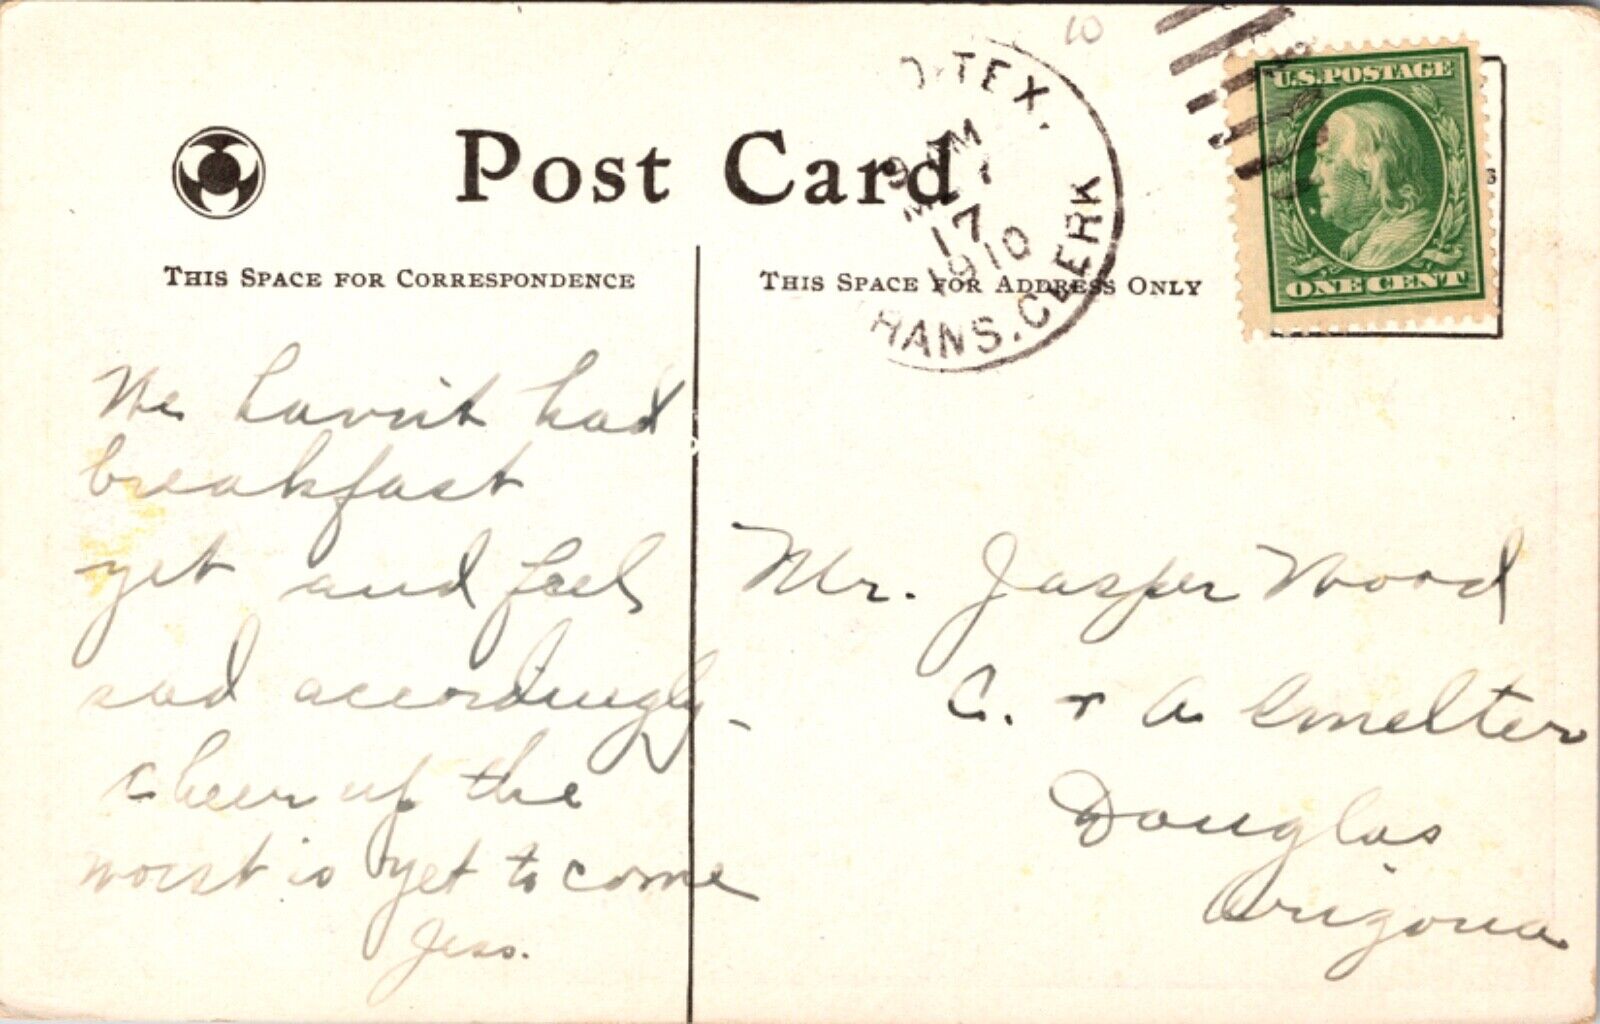 10
O. TEX.
9 AM
17
1910
TRANS. CLERK
U.S. POSTAGE
ONE CENT
Post Card
THIS SPACE FOR CORRESPONDENCE
THIS SPACE FOR ADDRESS ONLY
We havn't had
breakfast
yet and feel
sad accordingly -
cheer up the
worst is yet to come
Jess.
Mr. Jasper Wood
C. + A Smelter
Douglas
Arizona